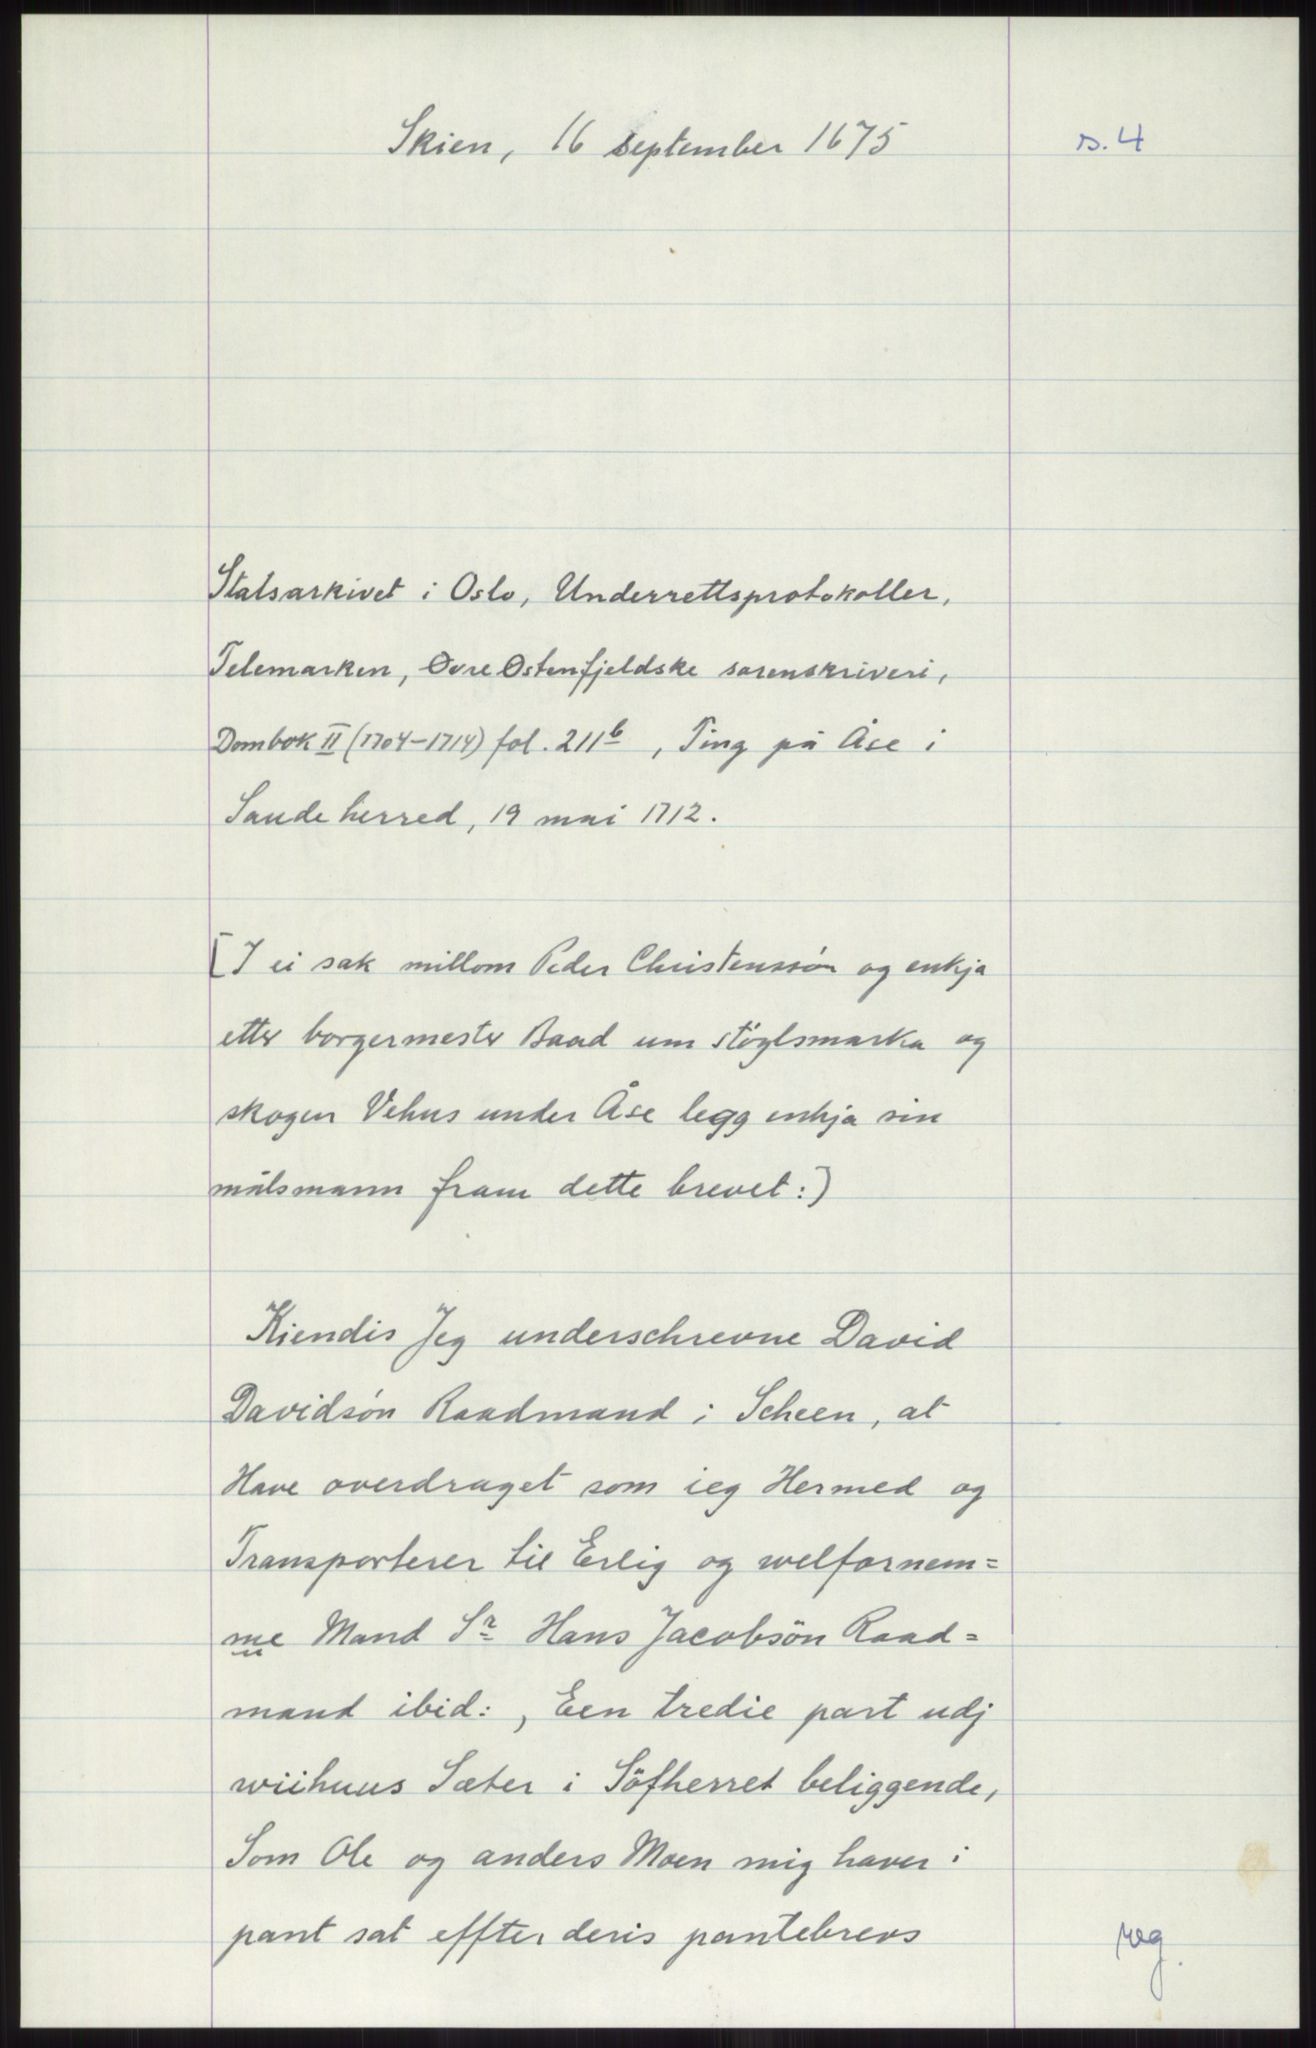 Skien, 16 september 1675
s. 4
Statsarkivet i Oslo, Underrettsprotokoller,
Telemarken, Øvre Østenfjeldske sorenskriveri,
Dombok II (1704-1714) fol. 211b, Ting på Åse i
Saude herred, 19 mai 1712.
[I ei sak millom Peder Christenssön og enkja
etter borgermester Baad um stöylsmarka og
skogen Vehus under Åse legg enkja sin
målsmann fram dette brevet:]
Kiendis Jeg underschrevne David
Davidsön Raadmand i Scheen, at
Have overdraget som ieg Hermed og
Transporterer til Erlig og welfornem=
me Mand Sr Hans Jacobsön Raad=
mand ibid:, Een tredie part udj
wiihuus Sæter i Söfherret beliggende,
Som Ole og anders Moen mig haver i
pant sat effter deris pantebrevs
reg.